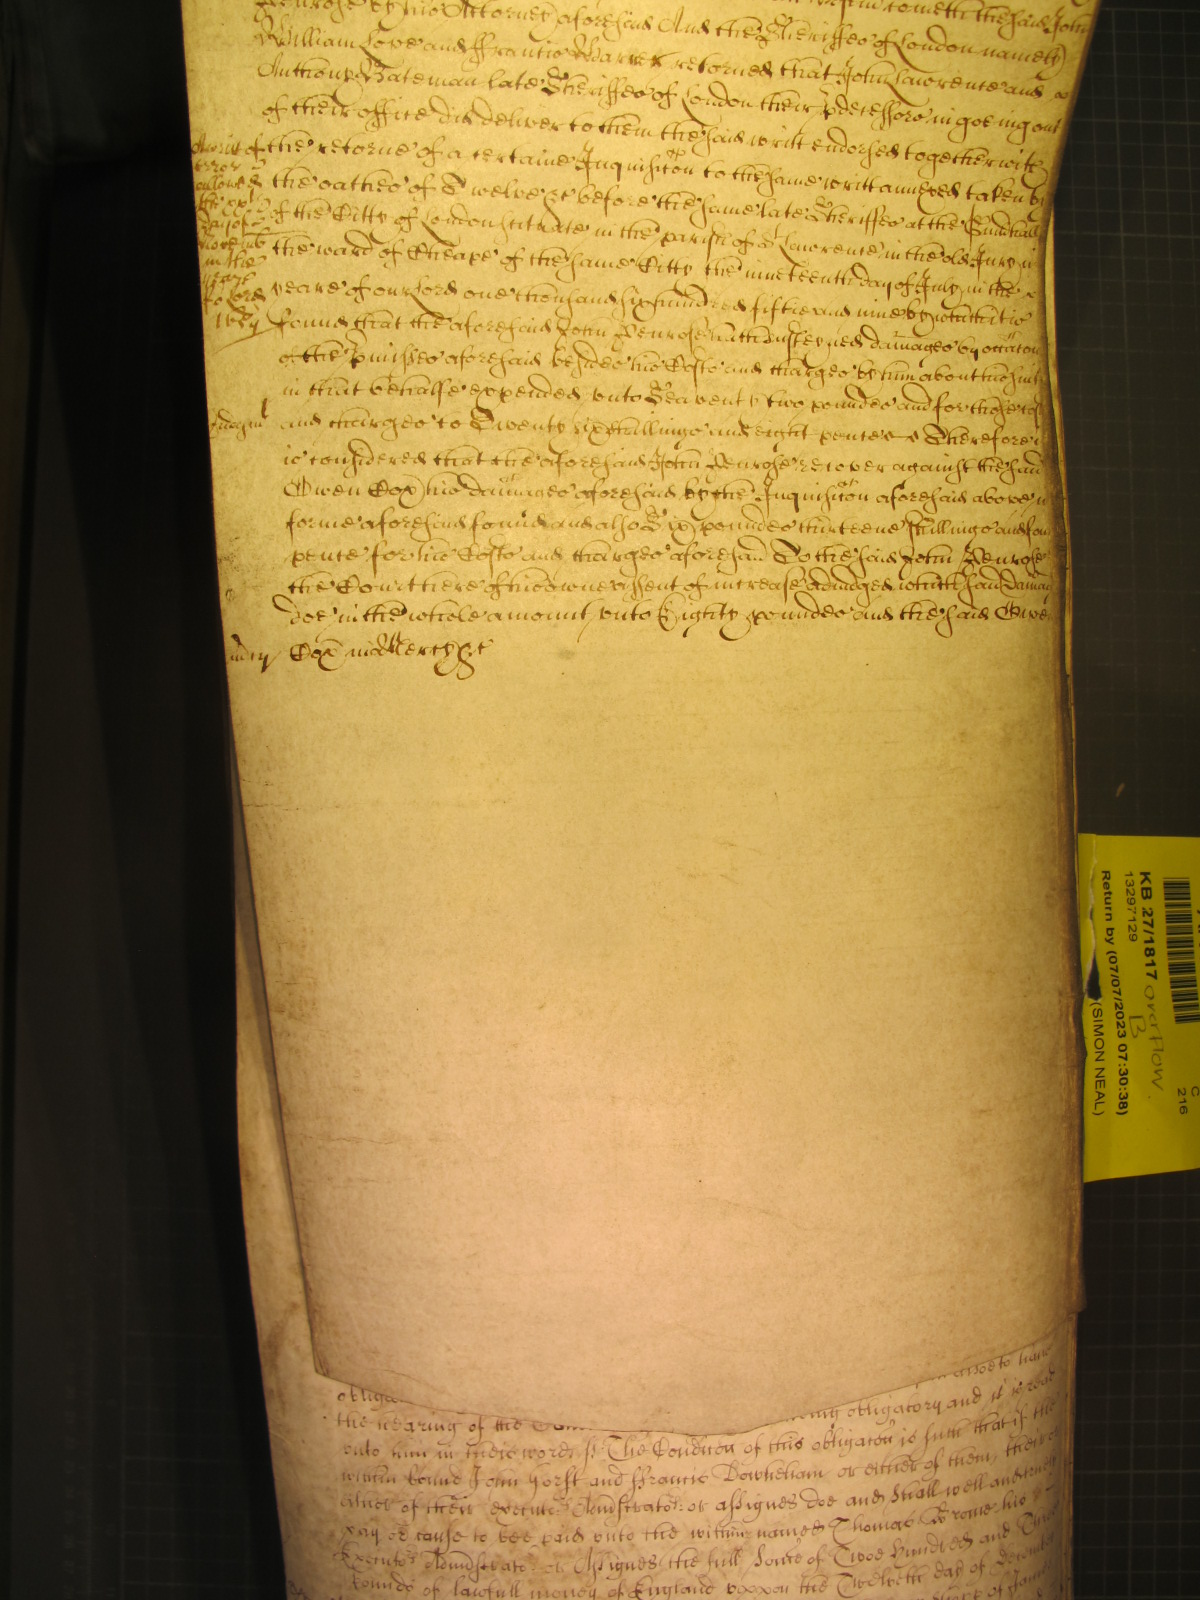 Penrose by his Attorney aforesaid And the Sheriffes of London namely
William Love and ffrancis Warner retorned that John Lawrence and
Anthony Bateman late Sheriffes of London their p̱decessors in goeing out
of their office did deliver to them the said writt endorsed together with
the retorne of a certaine Inquisicōn to the same writt annexed taken by
the oathes of Twelve &c before the same late Sheriffes at the Guildhall
of the Citty of London scituate in the parish of St Lawrence in the old Jury in
the ward of Cheape of the same Citty the nineteenth day of July in the
yeare of our Lord one thousand six hundred fiftie and nine by which it is
found that the aforesaid John Penrose hath susteyned damages by occacōn
of the p̱misses aforesaid besides his Costs and charges by him about his suite
in that behalfe expended unto Seaventy two poundes and for those costs
and charges to Twenty six shillings and eight pence Therefore it
is considered that the aforesaid John Penrose recover against the said
Owen Cox his damages aforesaid by the Inquisicōn aforesaid above in
forme aforesaid found and also Six poundes thirteene shillings and four
pence for his Costs and charges aforesaid To the said John Penrose
the Court here of his owne assent of increase adiudged which said damages
doe in the whole amount unto Eighty poundes and the said Owen
Cox in Mercy &c
writt of
error
allowed
the xxi
day of
Novemb
in the
yeare
of o Lord
1659
Judgmt
mcy
obliga
the hearing of the ing obligatory and it is read
unto him in these words ss The Condicōn of this obligacōn is such that if the
within bound John Horst and Francis Bowkeham or either of them, their or
either of their execut Administrat or assignes doe and shall well and truely
pay or cause to bee paid unto the within named Thomas Browne his
Executors Administrat or Assignes the full some of Twoe Hundred and Three
Pounds of lawfull money of England uppon the Twelveth day of December
KB 27/1817 overflow
B
13297129
Return by (07/07/2023 07:30:38)
(SIMON NEAL)
C
216